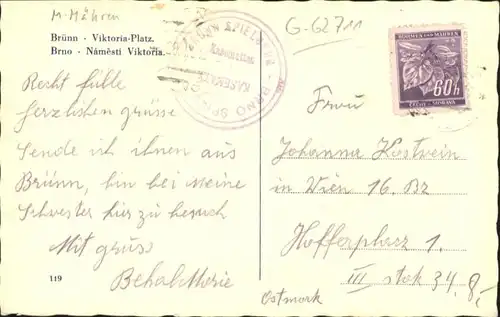 M-Mähren
G-62711
Brünn - Viktoria-Platz.
Brno - Náměstí Viktoria.
BRNO
KASEMATE
BÖHMEN UND MÄHREN
60h
ČECHY - MORAVA
Recht fülle
herzlichen grüsse
Sende ich ihnen aus
Brünn, bin bei meine
Schwester hier zu besuch
Mit grüss
Behal Marie
Frau
Johanna Kostwein
in Wien 16. Bz
Hofferplacz 1.
III stok 34.
8,-
Ostmark
119